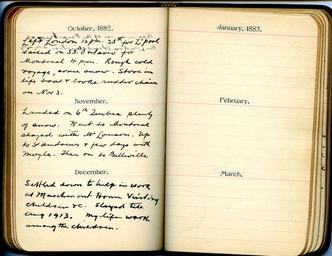 October, 1882.
Left London 12 pm 25th for L'pool
Sailed on SS. Ontario for
Montreal 4 pm. Rough cold
voyage, some snow. Stove in
life boat & broke rudder chain
on Nov 3.
November.
Landed on 6th Quebec plenty
of snow. Went to Montreal
stayed with Mr. Up
to St Andrews & few days with
then on to Belleville
December.
Settled down to help in work
at Marchmont Home Visiting
children &c. Stayed till
Aug 1913. My life work
among the children.
January, 1883.
February.
March.